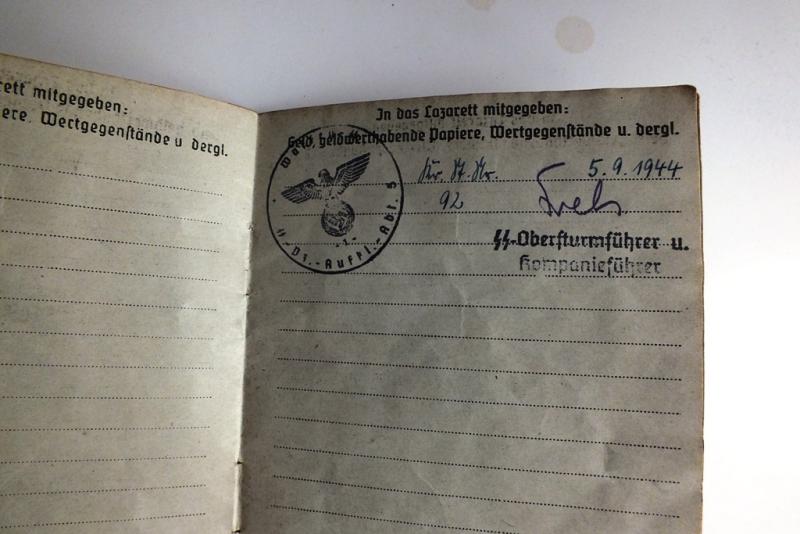 rett mitgegeben:
ere, Wertgegenstände u dergl.
In das Lazarett mitgegeben:
Geld, geldwerthabende Papiere, Wertgegenstände u. dergl.
5.9.1944
92
SS-Obersturmführer u.
Kompanieführer
Aufkl.-Abt. 5